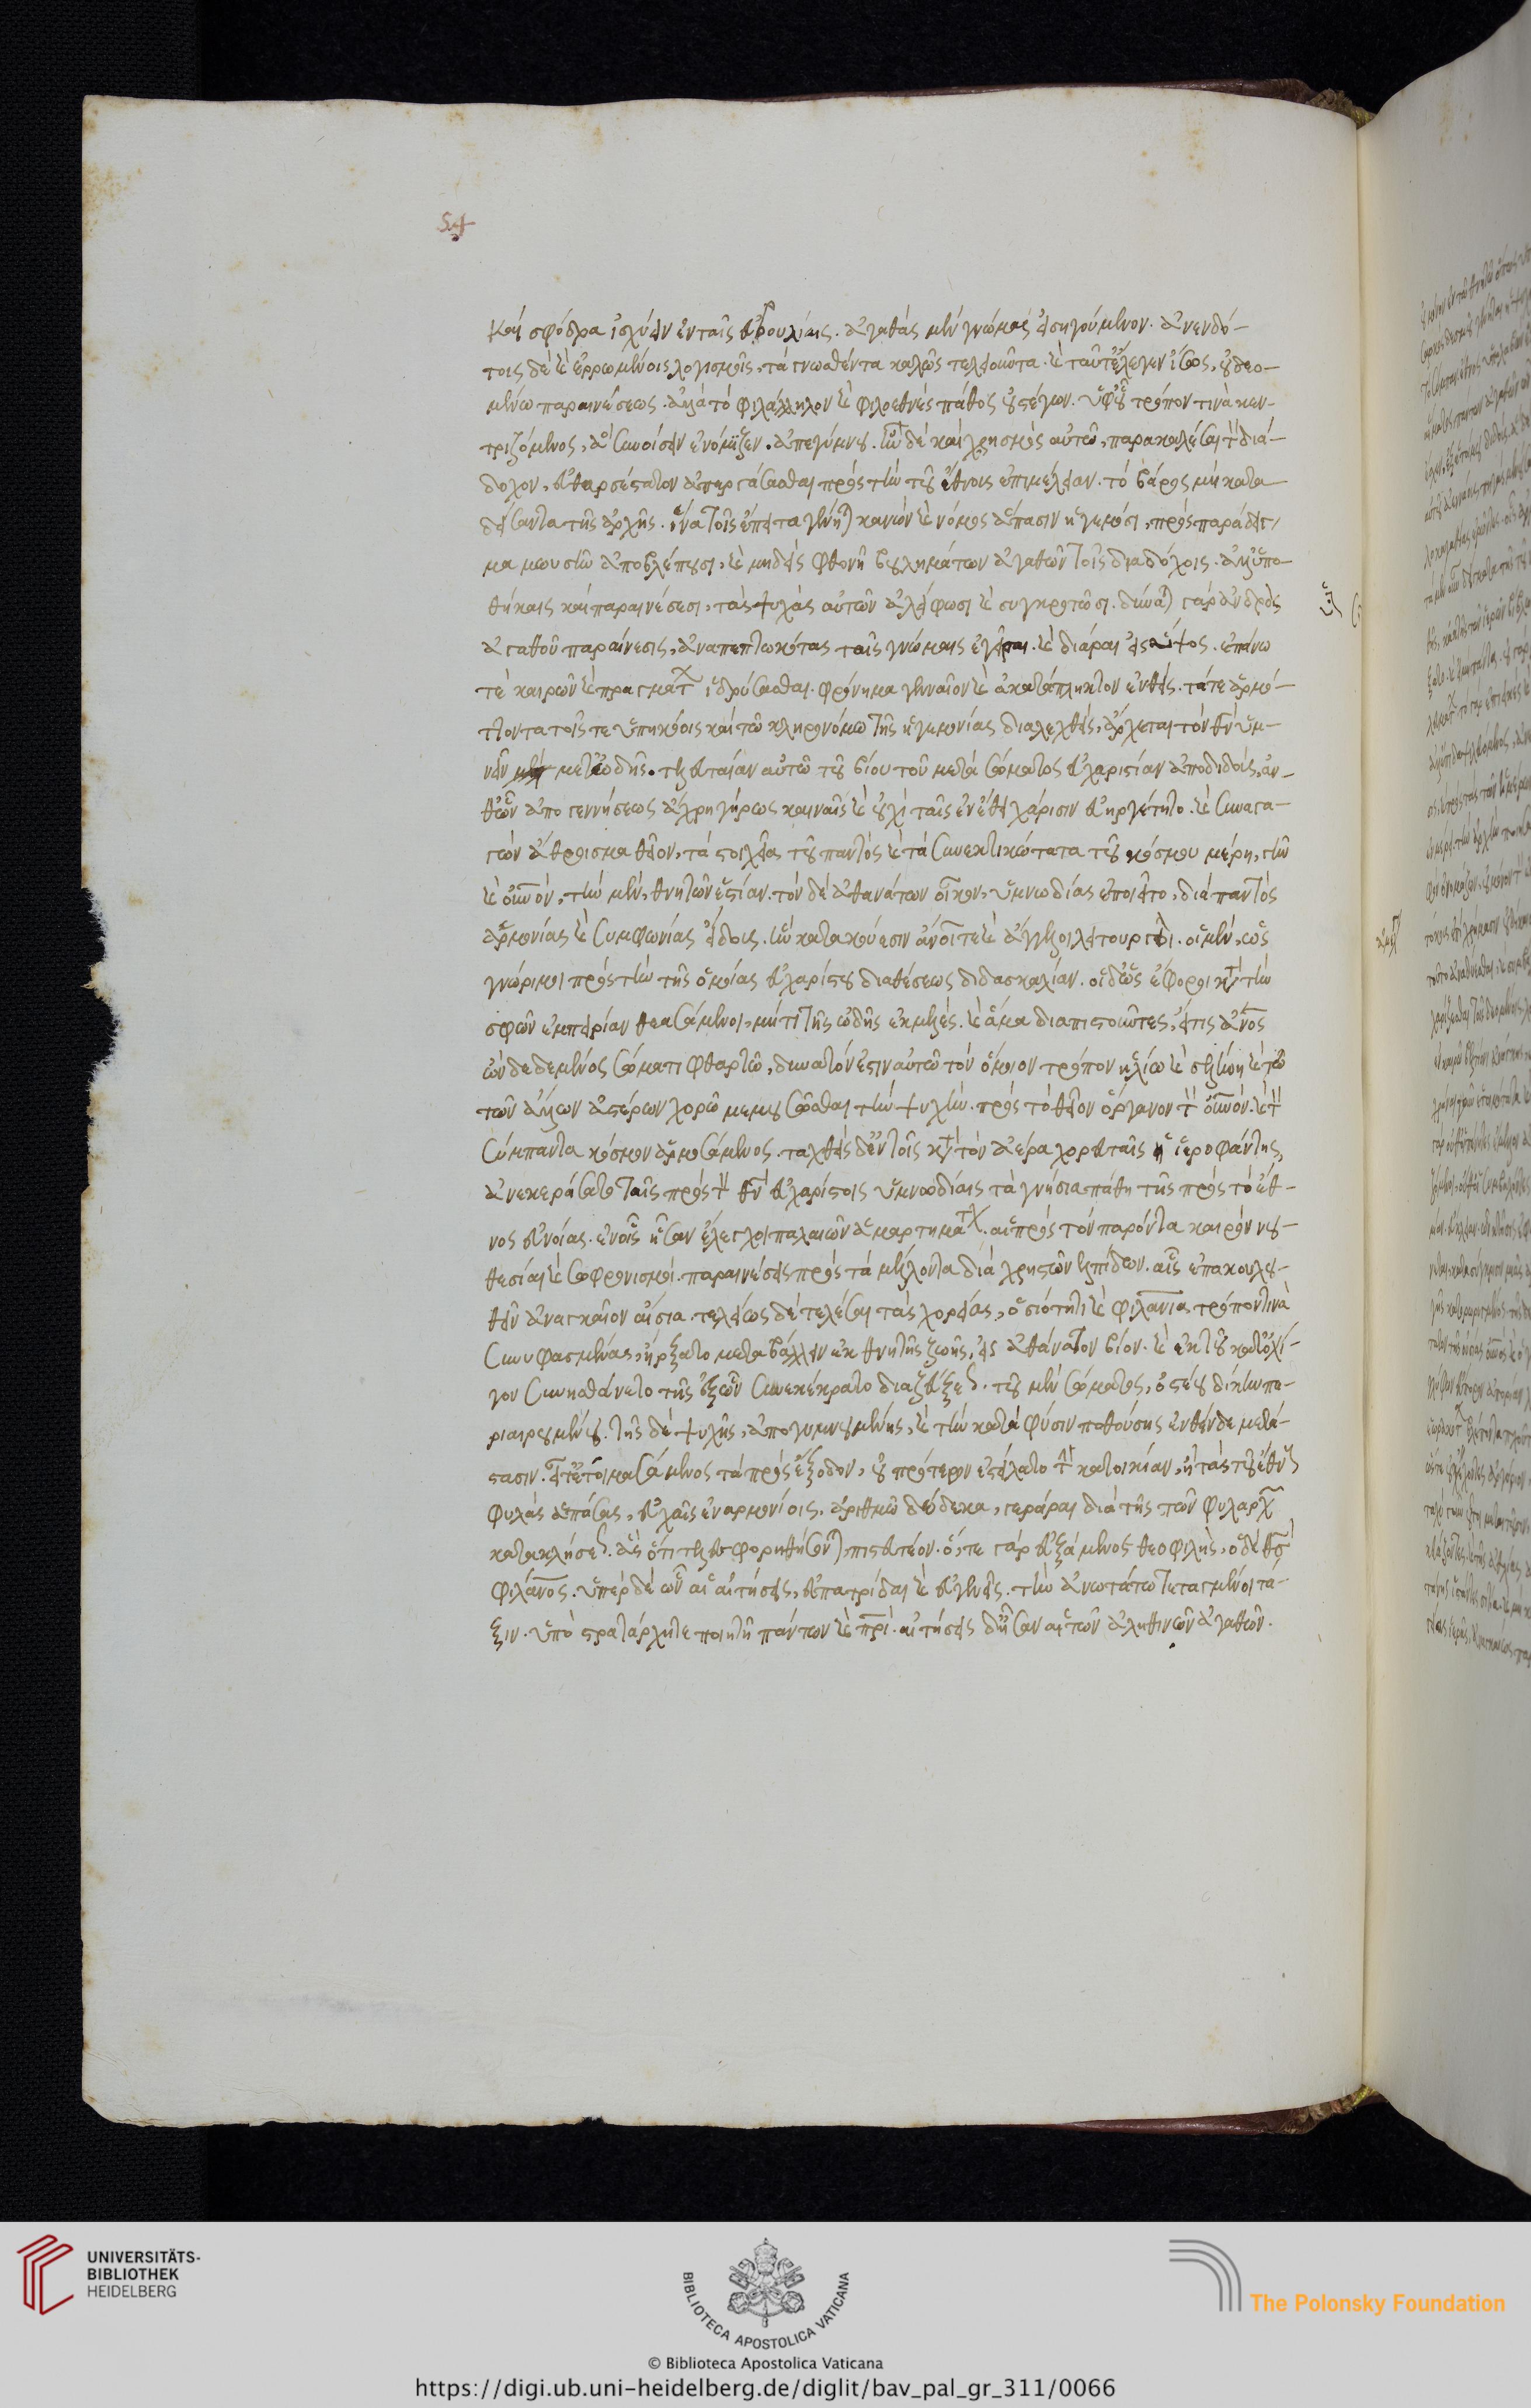 54
καὶ σφόδρα ἰσχύειν ἐν ταῖς εὐβουλίαις. ἀγαθὰς μὲν γνώμας εἰσηγούμενον. ἀνενδό-
τοις δὲ καὶ ἐρρωμένοις λογισμοῖς, τὰ γνωσθέντα καλῶς τελειοῦντα. καὶ ταῦτ' ἔλεγεν ἴσως, οὐ δεο-
μένω παραινέσεως. ἀλλὰ τὸ φιλάλληλον καὶ φιλοεθνὲς πάθος οὐ στέγων. ὑφ' οὗ τρόπον τινὰ κεν-
τριζόμενος, ἃ συνοίσειν ἐνόμιζεν. ἀπεγύμνου. ἦν δὲ καὶ χρησμὸς αὐτῶ, παρακαλέσαι τὸν διά-
δοχον, εὐθαρσέστατον ἀπεργάσασθαι πρὸς τὴν τοῦ ἔθνους ἐπιμέλειαν. τὸ βάρος μὴ κατα
δείσαντα τῆς ἀρχῆς. ἵνα τοῖς ἔπειτα γένηται κανὼν καὶ νόμος ἅπασιν ἡγεμόσι, πρὸς παράδειγ
μα μωυσῆν ἀποβλέπουσι, καὶ μηδεὶς φθονῆ βουλημάτων ἀγαθῶν τοῖς διαδόχοις. ἀλλ' ὑπο-
θήκαις καὶ παραινέσεσι, τὰς ψυχὰς αὐτῶν ἀλείφωσι καὶ συγκροτῶσι. δύναται γὰρ ἀνδρὸς
ἀγαθοῦ παραίνεσις, ἀναπεπτωκότας ταῖς γνώμαις ἐγεῖραι. καὶ διάραι εἰς ὕψος. ἐπάνω
τὲ καιρῶν καὶ πραγμάτων ἱδρύσασθαι. φρόνημα γενναῖον καὶ ἀκατάπληκτον ἐνθείς. τά τε ἁρμό-
ττοντα τοῖς τε ὑπηκόοις καὶ τῶ κληρονόμω τῆς ἡγεμονίας διαλεχθείς, ἄρχεται τὸν θν ὑμ-
νεῖν μετ' ὠδῆς. τελευταίαν αὐτῶ τοῦ βίου τοῦ μετὰ σώματος εὐχαριστίαν ἀποδιδούς, ἀν-
θ' ὧν ἀπὸ γεννήσεως ἄχρι γήρως καιναῖς καὶ οὐχὶ ταῖς ἐν ἔθει χάρισιν εὐηργέτητο. καὶ συναγα-
γὼν ἄθροισμα θεῖον, τὰ στοιχεῖα τοῦ παντὸς καὶ τὰ συνεκτικώτατα τοῦ κόσμου μέρη, γῆν
καὶ οὐνόν, τὴν μὲν, θνητῶν ἑστίαν. τὸν δὲ ἀθανάτων οἶκον, ὑμνωδίας ἐποιεῖτο, διὰ παντὸς
ἁρμονίας καὶ συμφωνίας εἴδους. ἵν' κατακούωσιν ἄνοί τε καὶ ἄγγελοι λειτουργοί. οἱ μὲν, ὡς
γνώριμοι πρὸς τὴν τῆς ὁμοίας εὐχαρίστου διαθέσεως διδασκαλίαν. οἱ δ' ὡς ἔφοροι κατὰ τὴν
σφῶν ἐμπειρίαν θεασάμενοι, μή τι τῆς ὠδῆς ἐκμελές. καὶ ἅμα διαπιστοῦντες, εἴ τις ἄνος
ὢν δεδεμένος σώματι φθαρτῶ, δυνατόν ἐστιν αὐτῶ τὸν ὅμοιον τρόπον ἡλίω καὶ σελήνη καὶ τῶ
τῶν ἄλλων ἀστέρων χορῶ μεμουσῶσθαι τὴν ψυχήν. πρὸς τὸ θεῖον ὄργανον τὸν οὐνόν. καὶ τὸν
σύμπαντα κόσμον ἁρμοσάμενος. ταχθεὶς δ' ἐν τοῖς κατὰ τὸν αἰθέρα χορευταῖς ὁ ἱεροφάντης,
ἀνεκεράσατο ταῖς πρὸς τὸν θν εὐχαρίστοις ὑμνωδίαις τὰ γνήσια πάθη τῆς πρὸς τὸ ἔθ-
νος εὐνοίας. ἐν οἷς ἦσαν ἔλεγχοι παλαιῶν ἁμαρτημάτων. αἱ πρὸς τὸν παρόντα καιρὸν νου-
θεσίαι καὶ σωφρονισμοί. παραινέσεις πρὸς τὰ μέλλοντα διὰ χρηστῶν ἐλπίδων. αἷς ἐπακολου-
θεῖν ἀναγκαῖον αἴσια. τελείως δὲ τελέσαι τὰς χορείας, ὁσιότητι καὶ φιλανία, τρόπον τινὰ
συνυφασμένας, ἤρξατο μεταβάλλειν ἐκ θνητῆς ζωῆς, εἰς ἀθάνατον βίον. καὶ ἐκ τοῦ κατ' ὀλί-
γον συνηθάνετο τῆς ἐξ ὧν συνεκέκρατο διαζεύξεως. τοῦ μὲν σώματος, ὀστέου δίκην πε-
ριαιρουμένου. τῆς δὲ ψυχῆς, ἀπογυμνουμένης, καὶ τὴν κατὰ φύσιν ποθούσης ἐνθένδε μετά-
στασιν. εἶτ' ἑτοιμασάμενος τὰ πρὸς ἔξοδον, οὐ πρότερον ἐστείλατο τὴν κατοικίαν, ἢ τὰς τοῦ ἔθνους
φυλὰς ἁπάσας, εὐχαῖς ἐναρμονίοις, ἀριθμῶ δώδεκα, γεράραι διὰ τῆς τῶν φυλαρχῶν
κατακλήσεως. ἃς ὅτι τελεσφορηθήσονται, πιστευτέον. ὅ, τε γὰρ εὐξάμενος θεοφιλὴς, ὁ δὲ θς
φιλάνος. ὑπὲρ δὲ ὧν αἱ αἰτήσεις, εὐπατρίδαι καὶ εὐγενεῖς. τὴν ἀνωτάτω τεταγμένοι τά-
ξιν. ὑπὸ στρατάρχη τε ποιητῆ πάντων καὶ πρί. αἰτήσεις δ' ἦσαν αἱ τῶν ἀληθινῶν ἀγαθῶν.
UNIVERSITÄTS-
BIBLIOTHEK
HEIDELBERG
BIBLIOTECA APOSTOLICA VATICANA
The Polonsky Foundation
© Biblioteca Apostolica Vaticana
https://digi.ub.uni-heidelberg.de/diglit/bav_pal_gr_311/0066